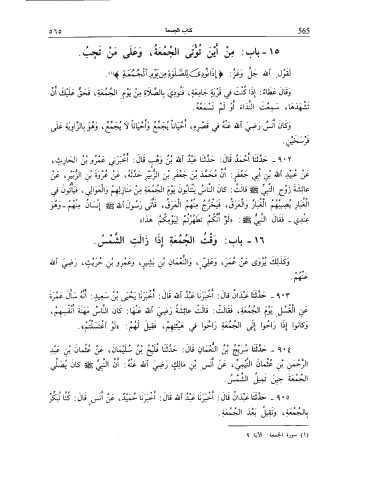 ٥٦٥ كتاب الجمعة 565
١٥ - باب: مِنْ أَيْنَ تُؤْتَى الجُمُعَةُ، وَعَلَى مَنْ تَجِبُ.
لِقَوْلِ الله جَلَّ وَعَزَّ: ﴿إِذَا نُودِيَ لِلصَّلَوٰةِ مِن يَوْمِ ٱلْجُمُعَةِ﴾(١).
وَقَالَ عَطَاءٌ: إِذَا كُنْتَ في قَرْيَةٍ جَامِعَةٍ، فَنُودِيَ بِالصَّلَاةِ مِنْ يَوْمِ الجُمُعَةِ، فَحَقٌّ عَلَيْكَ أَنْ
تَشْهَدَهَا، سَمِعْتَ النِّدَاءَ أَوْ لَمْ تَسْمَعْهُ.
وَكَانَ أَنَسٌ رَضِيَ الله عَنْهُ في قَصْرِهِ، أَحْيَاناً يُجَمِّعُ وَأَحْيَاناً لَا يُجَمِّعُ، وَهُوَ بِالزَّاوِيَةِ عَلَى
فَرْسَخَيْنِ.
٩٠٢ - حَدَّثَنَا أَحْمَدُ قَالَ: حَدَّثَنَا عَبْدُ الله بْنُ وَهْبٍ قَالَ: أَخْبَرَنِي عَمْرُو بْنُ الحَارِثِ،
عَنْ عُبَيْدِ الله بْنِ أَبِي جَعْفَرٍ: أَنَّ مُحَمَّدَ بْنَ جَعْفَرِ بْنِ الزُّبَيْرِ حَدَّثَهُ، عَنْ عُرْوَةَ بْنِ الزُّبَيْرِ، عَنْ
عَائِشَةَ زَوْجِ النَّبِيِّ ﷺ قَالَتْ: كَانَ النَّاسُ يَنْتَابُونَ يَوْمَ الجُمُعَةِ مِنْ مَنَازِلِهِمْ وَالْعَوَالِي، فَيَأْتُونَ في
الْغُبَارِ يُصِيبُهُمُ الْغُبَارُ وَالْعَرَقُ، فَيَخْرُجُ مِنْهُمُ الْعَرَقُ، فَأَتَى رَسُولَ الله ﷺ إِنْسَانٌ مِنْهُمْ - وَهْوَ
عِنْدِي - فَقَالَ النَّبِيُّ ﷺ: «لَوْ أَنَّكُمْ تَطَهَّرْتُمْ لِيَوْمِكُمْ هٰذَا»
١٦ - باب: وَقْتُ الجُمُعَةِ إِذَا زَالَتِ الشَّمْسُ.
وَكَذٰلِكَ يُرْوَى عَنْ عُمَرَ، وَعَلِيٍّ، وَالنُّعْمَانِ بْنِ بَشِيرٍ، وَعَمْرِو بْنِ حُرَيْثٍ، رَضِيَ الله
عَنْهُمْ.
٩٠٣ - حَدَّثَنَا عَبْدَانُ قَالَ: أَخْبَرَنَا عَبْدُ الله قَالَ: أَخْبَرَنَا يَحْيَى بْنُ سَعِيدٍ: أَنَّهُ سَأَلَ عَمْرَةَ
عَنِ الْغُسْلِ يَوْمَ الجُمُعَةِ، فَقَالَتْ: قَالَتْ عَائِشَةُ رَضِيَ الله عَنْهَا: كَانَ النَّاسُ مَهَنَةَ أَنْفُسِهِمْ،
وَكانوا إِذَا رَاحُوا إِلَى الجُمُعَةِ رَاحُوا في هَيْئَتِهِمْ، فَقِيلَ لَهُمْ: «لَوِ اغْتَسَلْتُمْ».
٩٠٤ - حَدَّثَنَا سُرَيْجُ بْنُ النُّعْمَانِ قَالَ: حَدَّثَنَا فُلَيْحُ بْنُ سُلَيْمَانَ، عَنْ عُثْمَانَ بْنِ عَبْدِ
الرَّحْمٰنِ بْنِ عُثْمَانَ التَّيْمِيِّ، عَنْ أَنَسِ بْنِ مالِكٍ رَضِيَ الله عَنْهُ: أَنَّ النَّبِيَّ ﷺ كَانَ يُصَلِّي
الجُمُعَةَ حِينَ تَمِيلُ الشَّمْسُ.
٩٠٥ - حَدَّثَنَا عَبْدَانُ قَالَ: أَخْبَرَنَا عَبْدُ الله قَالَ: أَخْبَرَنَا حُمَيْدٌ، عَنْ أَنَسٍ قَالَ: كُنَّا نُبَكِّرُ
بِالجُمُعَةِ، وَنَقِيلُ بَعْدَ الجُمُعَةِ.
(١) سورة الجمعة: الآية ٩